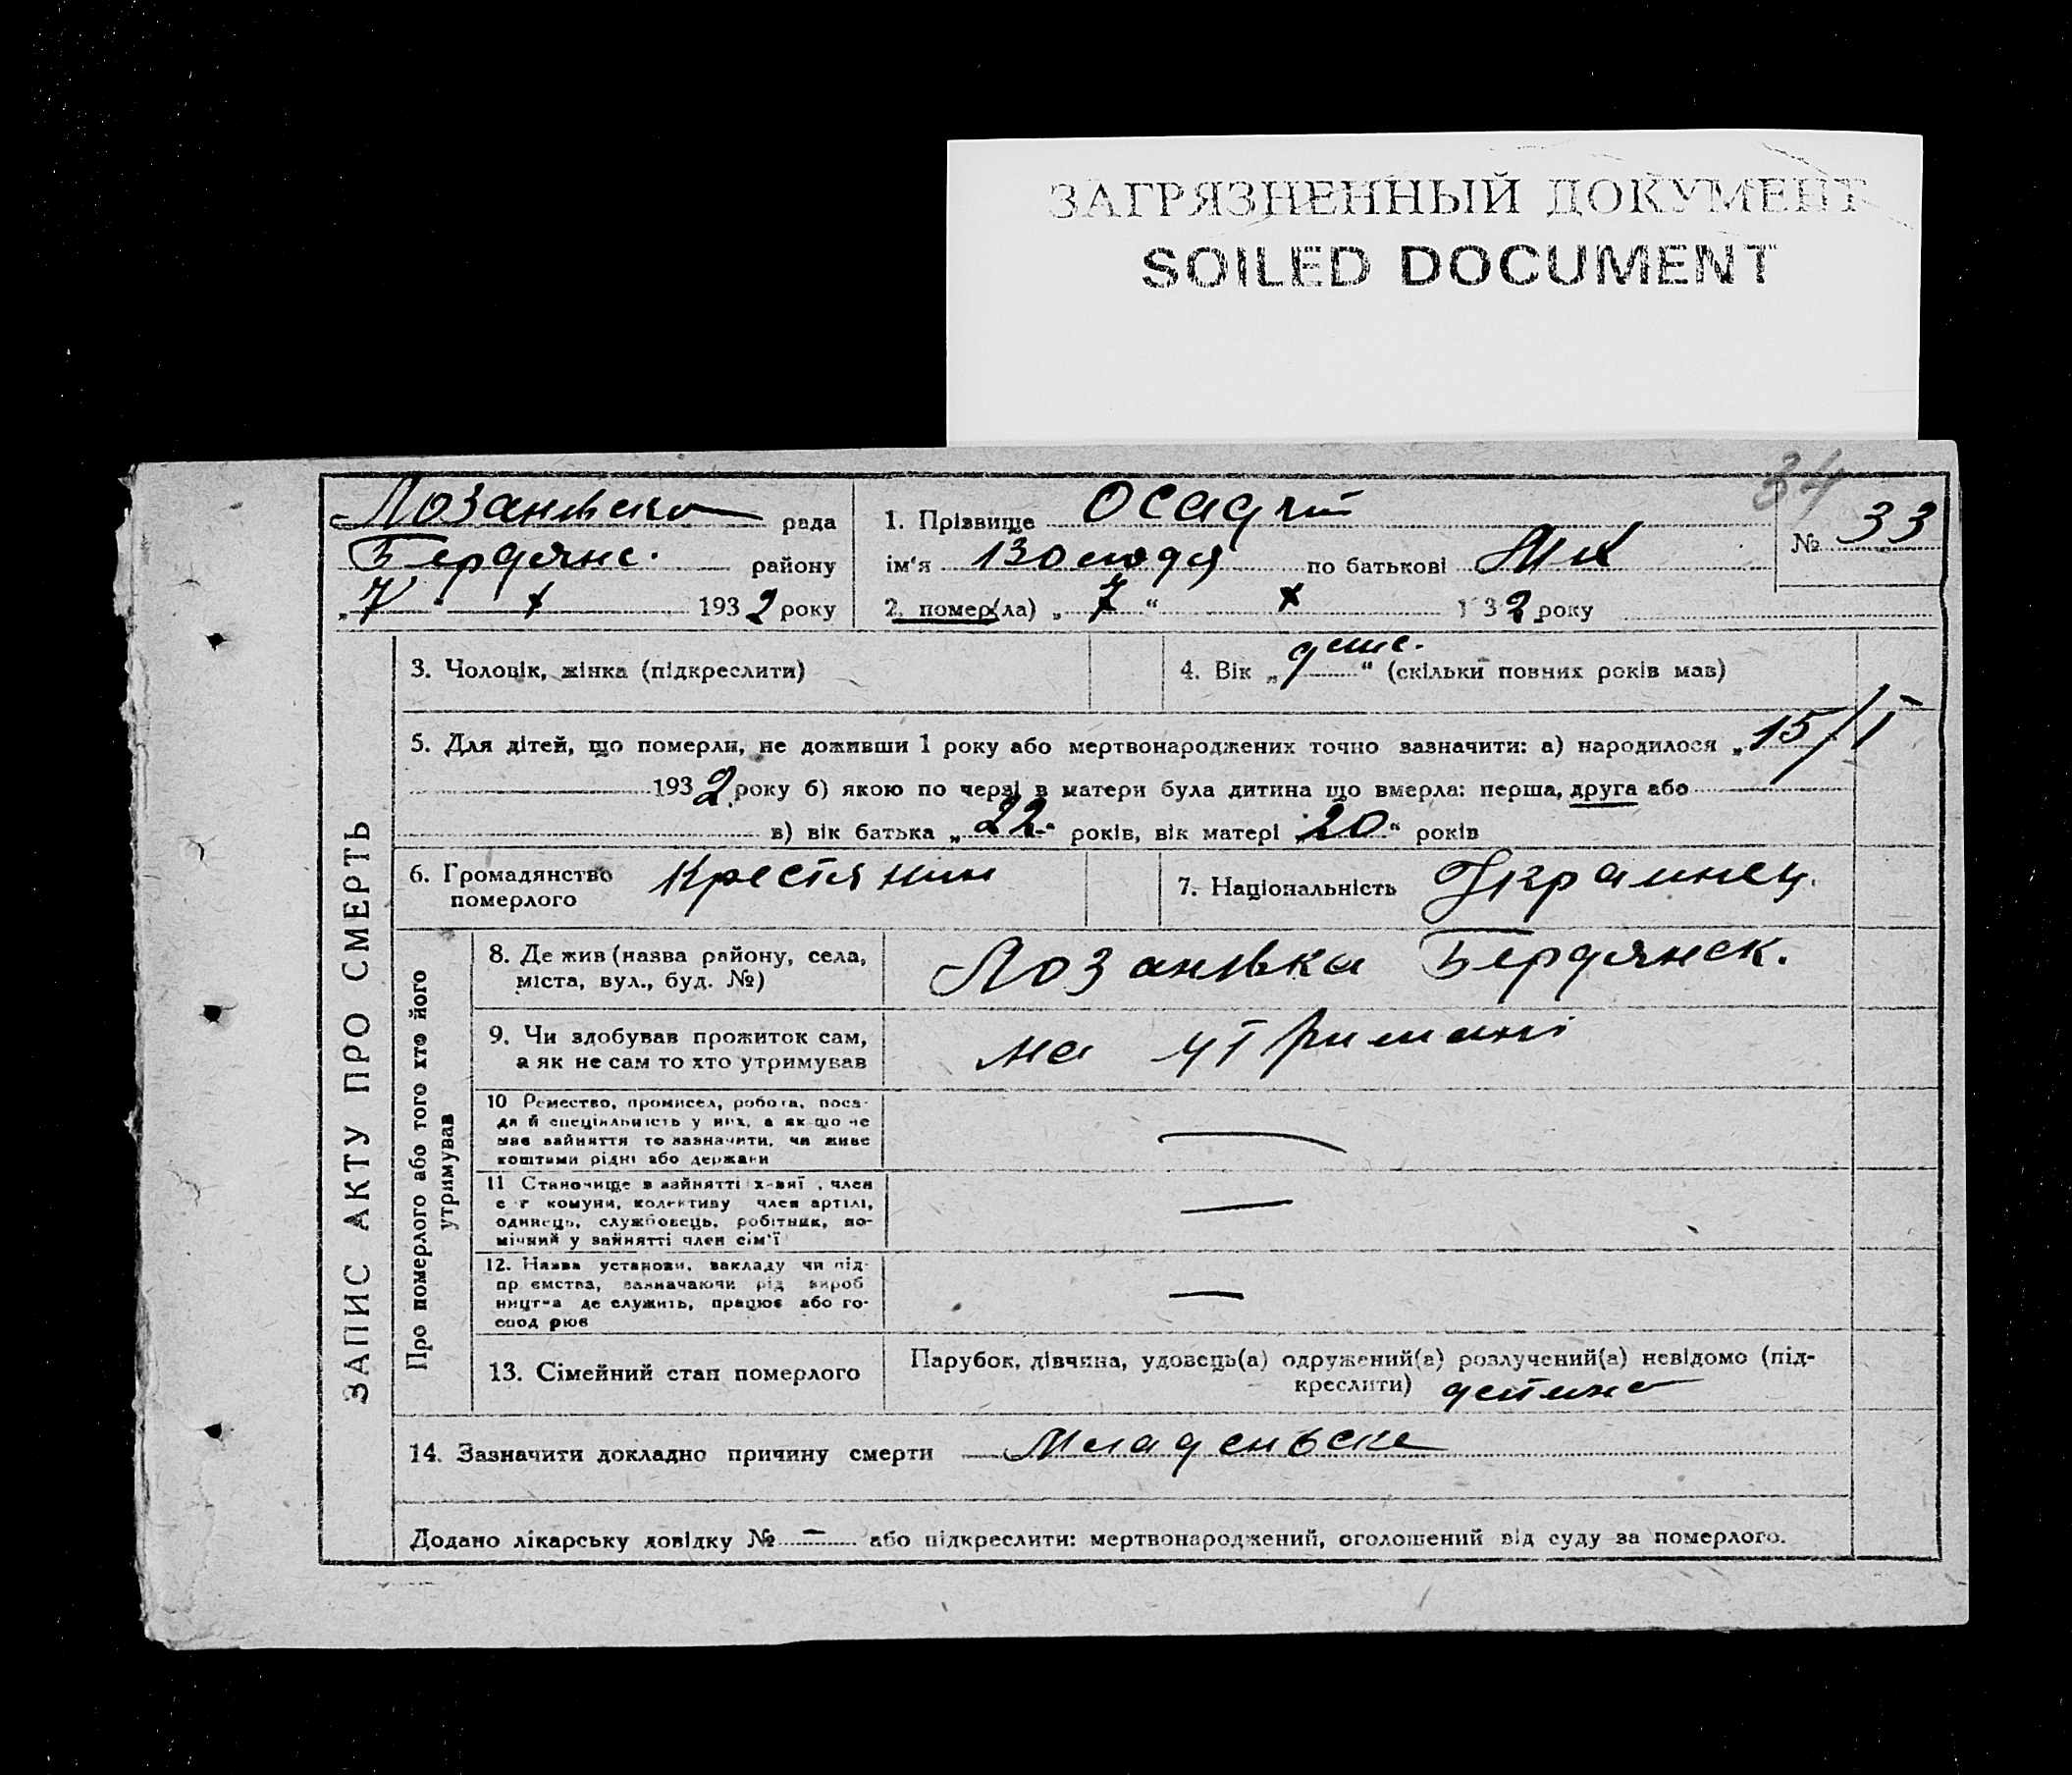 ЗАГРЯЗНЕННЫЙ ДОКУМЕНТ
SOILED DOCUMENT
34
Лозанівска рада
Бердянс. району
„7" X 1932 року
1. Прізвище Осадчий
ім'я Володя по батькові Мих
2. помер(ла) „7“ X 1932 року
№ 33
ЗАПИС АКТУ ПРО СМЕРТЬ
3. Чоловік, жінка (підкреслити)
4. Вік „дит.“ (скільки повних років мав)
5. Для дітей, що померли, не доживши 1 року або мертвонароджених точно зазначити: а) народилося „15/I
1932 року б) якою по черзі в матери була дитина що вмерла: перша, друга або
в) вік батька „22“ років, вік матері „20“ років
6. Громадянство померлого Крестянин
7. Національність Украинец.
Про померлого або того хто його утримував
8. Де жив (назва району, села,
міста, вул., буд. №)
Лозанівка Бердянск.
9. Чи здобував прожиток сам,
а як не сам то хто утримував
на утримані
10 Ремество, промисел, робота, поса-
да й спеціяльність у них, а як що не
має зайняття то зазначити, чи живе
коштами рідні або держави
—
11 Становище в зайнятті член
с г комуни, колективу член артілі,
одинець, службовець, робітник, по-
мічний у зайнятті член сім'ї
—
12. Назва установи, закладу чи під-
пр ємства, зазначаючи рід вироб
ництва де служить, працює або го-
спод рює
—
13. Сімейний стан померлого
Парубок, дівчина, удовець(а) одружений(а) розлучений(а) невідомо (під-
креслити) детина
14. Зазначити докладно причину смерти Младеньска
Додано лікарську довідку № — або підкреслити: мертвонароджений, оголошений від суду за померлого.